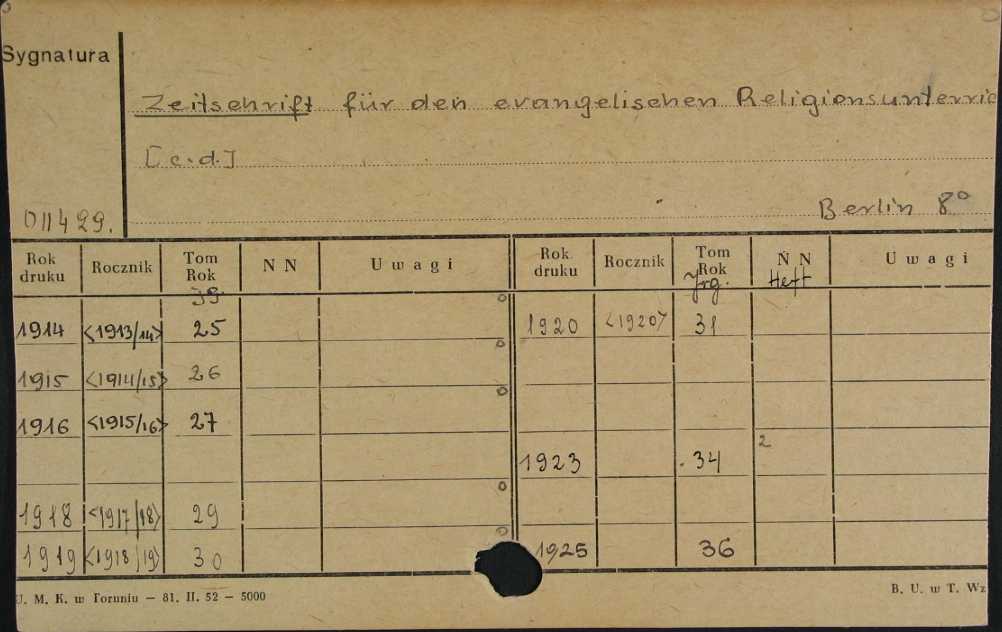 Sygnatura
Zeitschrift für den evangelischen Religionsunterric
[c.d.]
Berlin 8°
011499.
Rok druku Rocznik Tom Rok N N Uwagi Rok druku Rocznik Tom Rok N N Uwagi
Jrg. Heft
1914 <1913/14> 25 1920 <1920> 31
1915 <1914/15> 26
1916 <1915/16> 27
1923 34 2
1918 <1917/18> 29
1919 <1918/19> 30 1925 36
U. M. K. w Toruniu — 81. II. 52 — 5000 B. U. w T. Wz